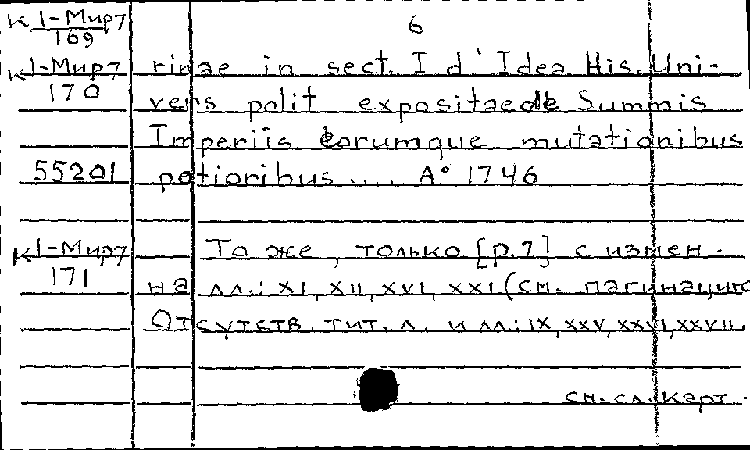 К 1-Мир7 6
169
К 1-Мир7 rinae in sect. I d' Idea His. Uni-
170 vers polit expositae de Summis
Imperiis eorumque mutationibus
55201 potioribus .... A° 1746
К 1-Мир7 То же, только [р.7] с измен.
171 на лл.: XI, XII, XVI, XXI (см. пагинацию
Отсутств. тит. л. и лл.: IX, XXV, XXVI, XXVII
см. сл. карт.